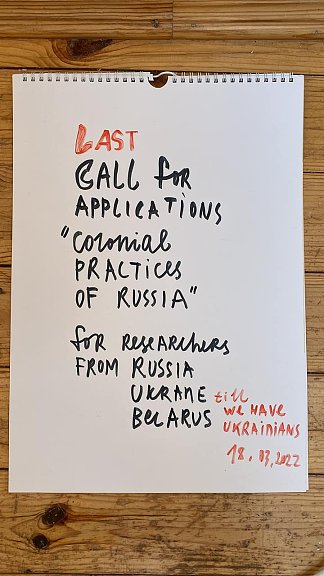 LAST
CALL FOR
APPLICATIONS
"COLONIAL
PRACTICES
OF RUSSIA"
FOR RESEARCHERS
FROM RUSSIA
UKRANE till
BELARUS WE HAVE
UKRAINIANS
18.03.2022